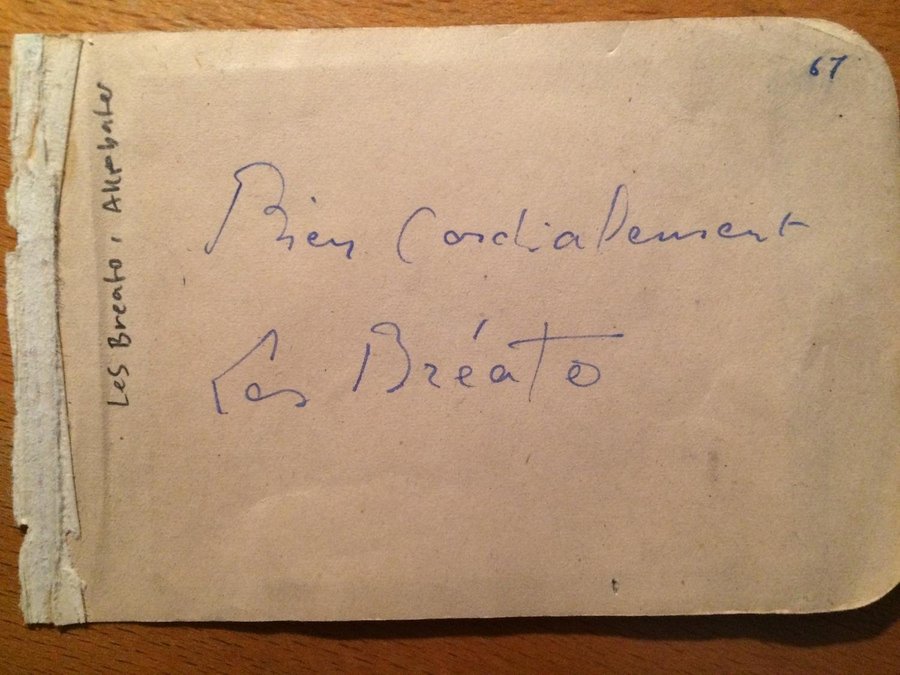 67
Bien Cordialement
Les Bréato
Les Breato, Akrobater